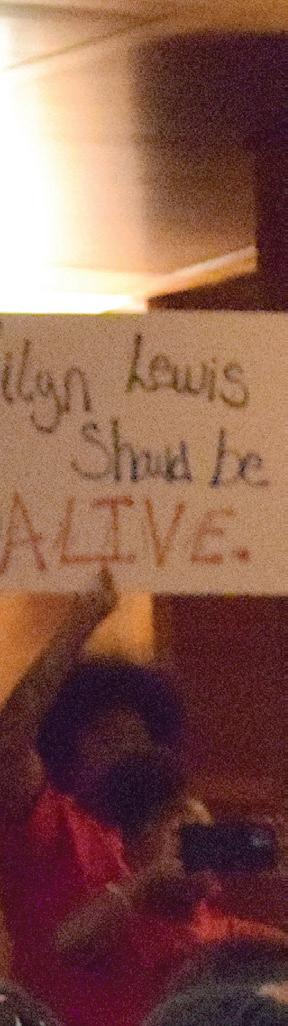 ilyn Lewis
Should be
ALIVE.